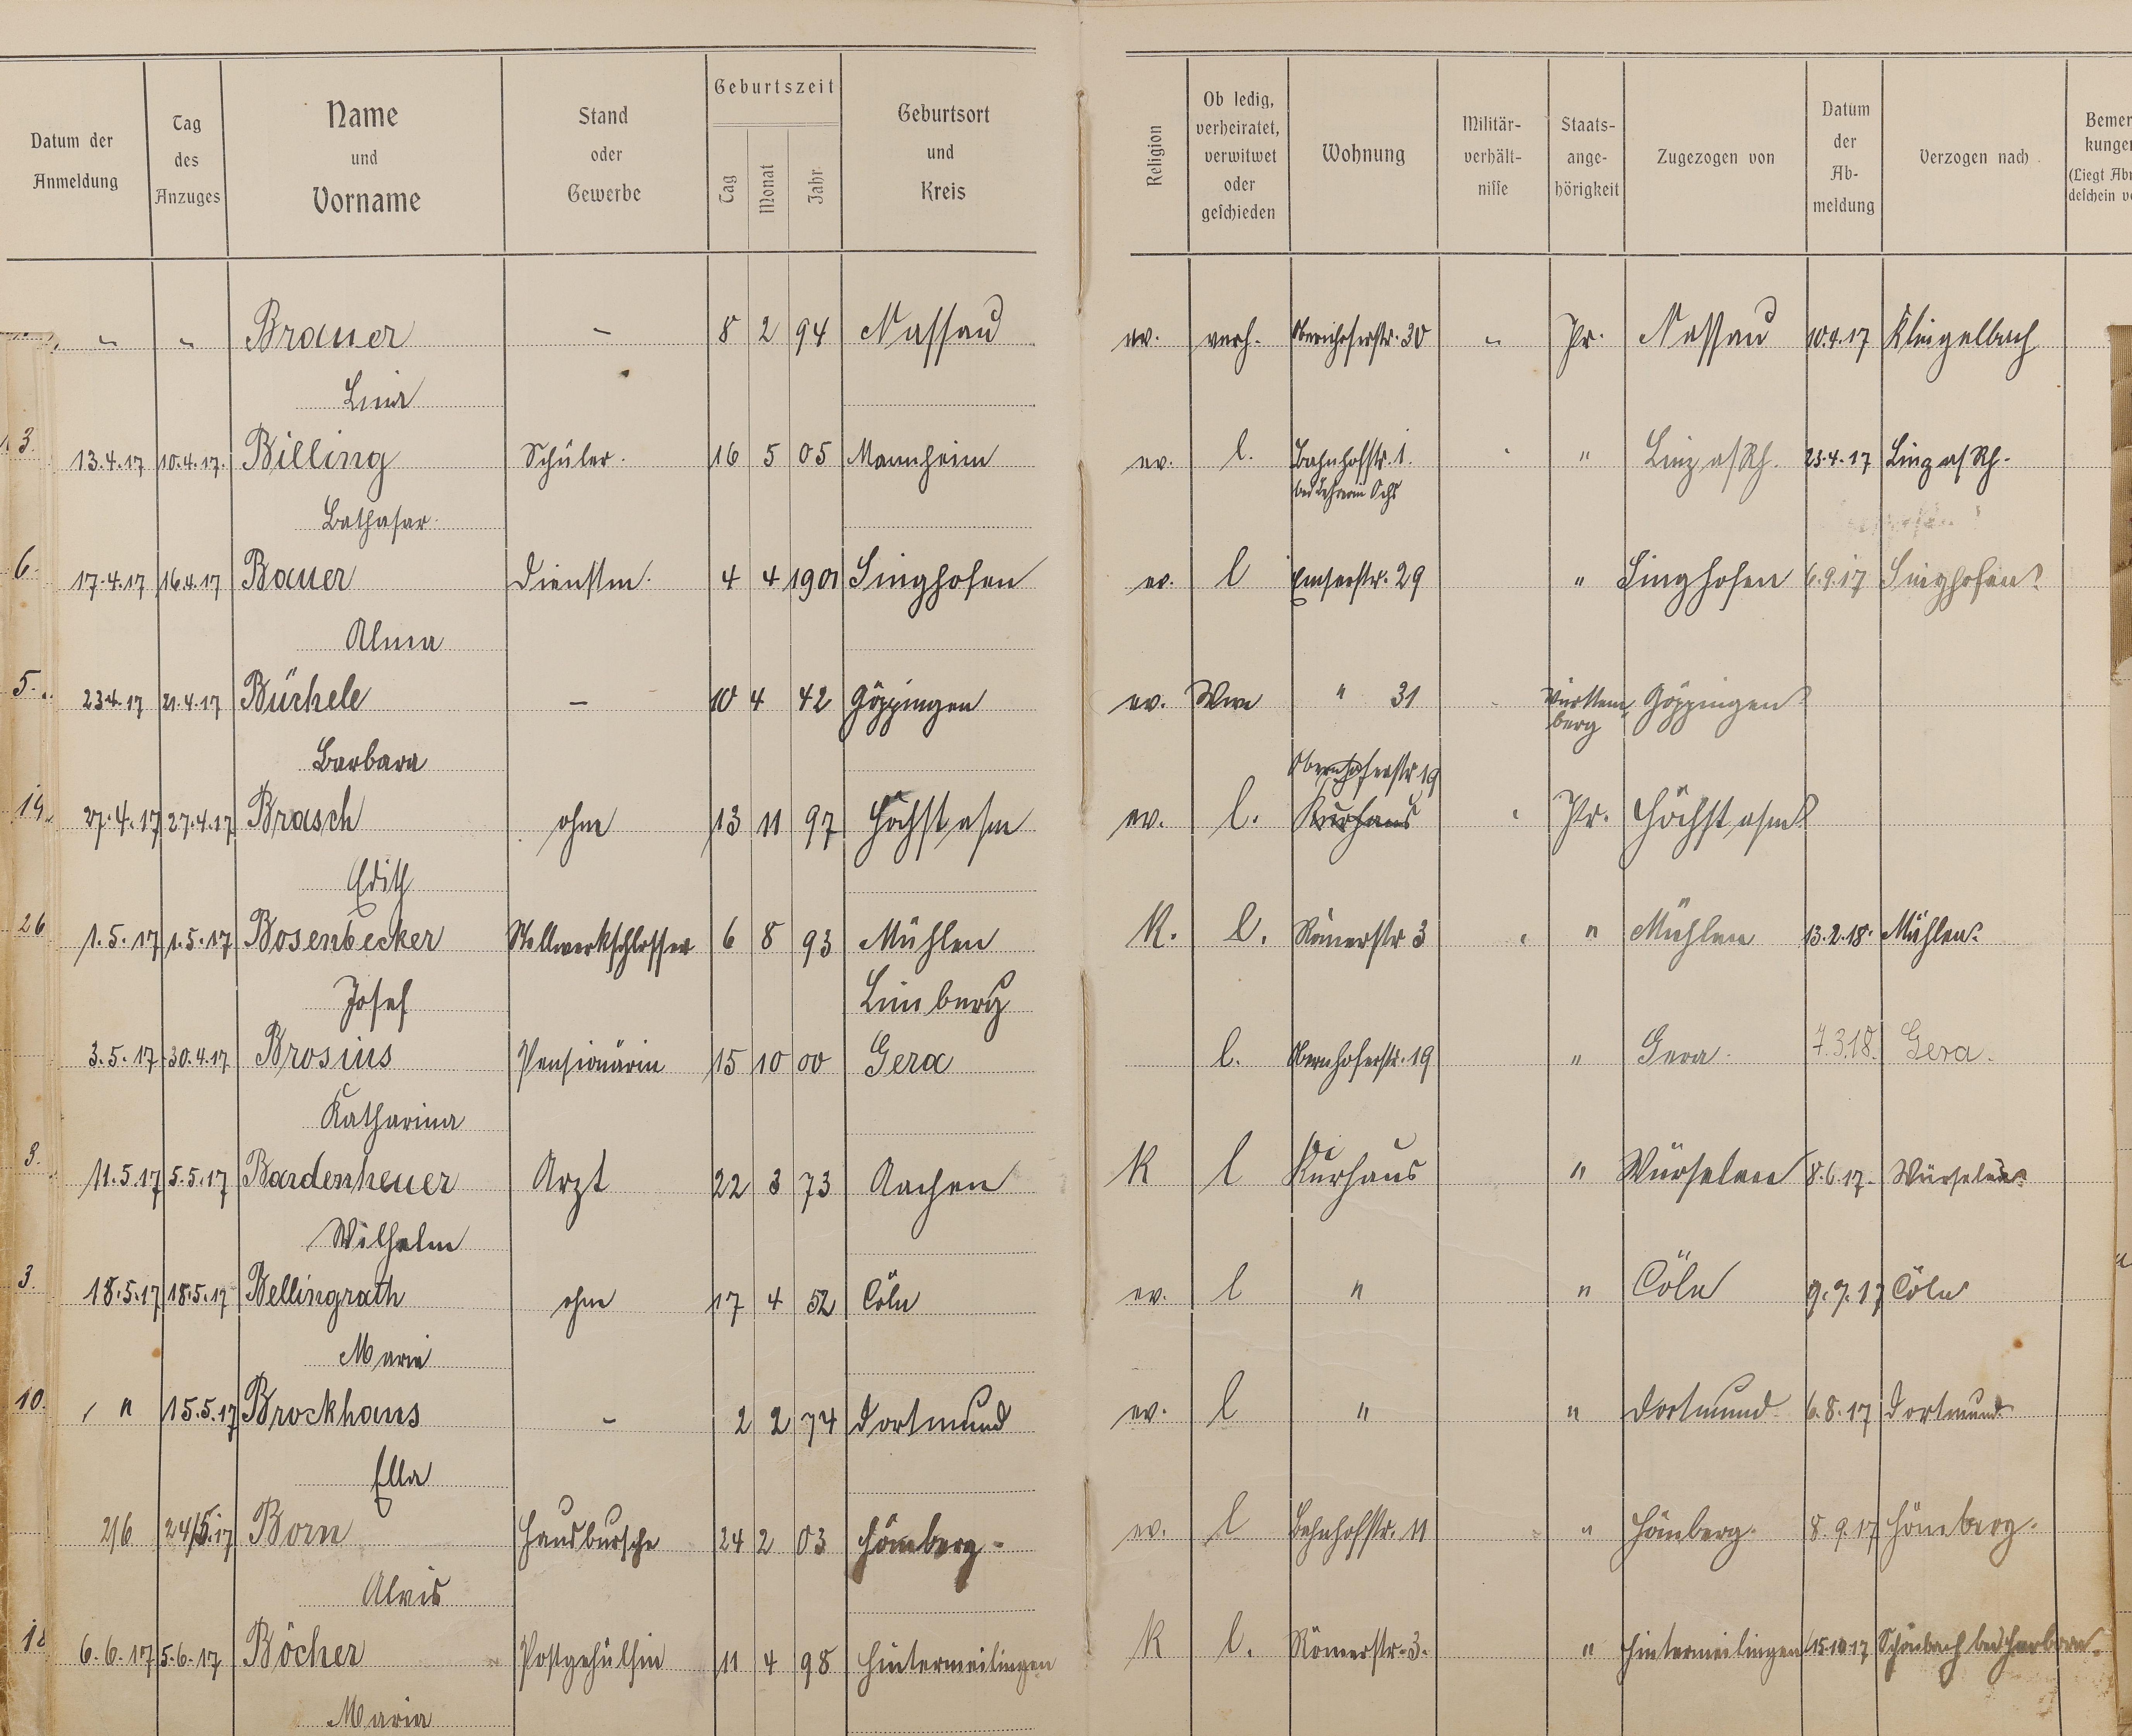 Datum der Anmeldung | Tag des Anzuges | Name und Vorname | Stand oder Gewerbe | Geburtszeit Tag Monat Jahr | Geburtsort und Kreis | Religion | Ob ledig, verheiratet, verwitwet oder geschieden | Wohnung | Militär-verhält-nisse | Staats-ange-hörigkeit | Zugezogen von | Datum der Ab-meldung | Verzogen nach
" " Brauer - 8 2 94 Nassau ev. verh. Obernhoferstr. 30 " Pr. Nassau 10.4.17 Klingelbach
Lina
3. 13.4.17 10.4.17. Billing Schüler. 16 5 05 Mannheim ev. l. Bahnhofstr. 1. " Linz a/Rh. 23.4.17 Linz a/Rh.
bei Lehrerin Ochs
Bathasar.
6. 17.4.17 16.4.17 Bauer Dienstm. 4 4 1901 Singhofen ev. l Emserstr. 29 " Singhofen 6.9.17 Singhofen
Alma
5. 23.4.17 21.4.17 Bürkele - 10 4 42 Göppingen ev. Wwe " 31 Württem berg Göppingen
Barbara
Obernhoferstr. 19
19. 27.4.17 27.4.17 Brasch ohne 13 11 97 Höchst a/m ev. l. Kurhaus Pr. Höchst a/m
Edith
26 1.5.17 1.5.17 Bosenbecker Stellwerkschlosser 6 8 93 Mühlen K. l. Römerstr 3 " Mühlen 13.2.18. Mühlen
Josef Limburg
3.5.17 30.4.17 Brosius Pensionärin 15 10 00 Gera l. Obernhoferstr. 19 " Gera. 7.3.18. Gera.
Katharina
3. 11.5.17 5.5.17 Bardenheuer Arzt 22 3 73 Aachen K l Kurhaus " Würselen 8.6.17. Würselen
Wilhelm
3. 18.5.17 18.5.17 Bellingrath ohne 17 4 52 Cöln ev. l " " Cöln 9.7.17 Cöln
Marie
10. " 15.5.17 Brockhaus - 2 2 74 Dortmund ev. l " " Dortmund 6.8.17 Dortmund
Ella
2/6 24/5.17 Born Hausbursche 24 2 03 Hömberg ev. l Bahnhofstr. 11 " Hömberg. 8.9.17 Hömberg.
Alois
6.6.17 5.6.17 Böcher Postgehülfin 11 4 98 Hintermeilingen K l. Römerstr. 3. " Hintermeilingen 15.10.17 Schönbach bei Herborn.
Maria